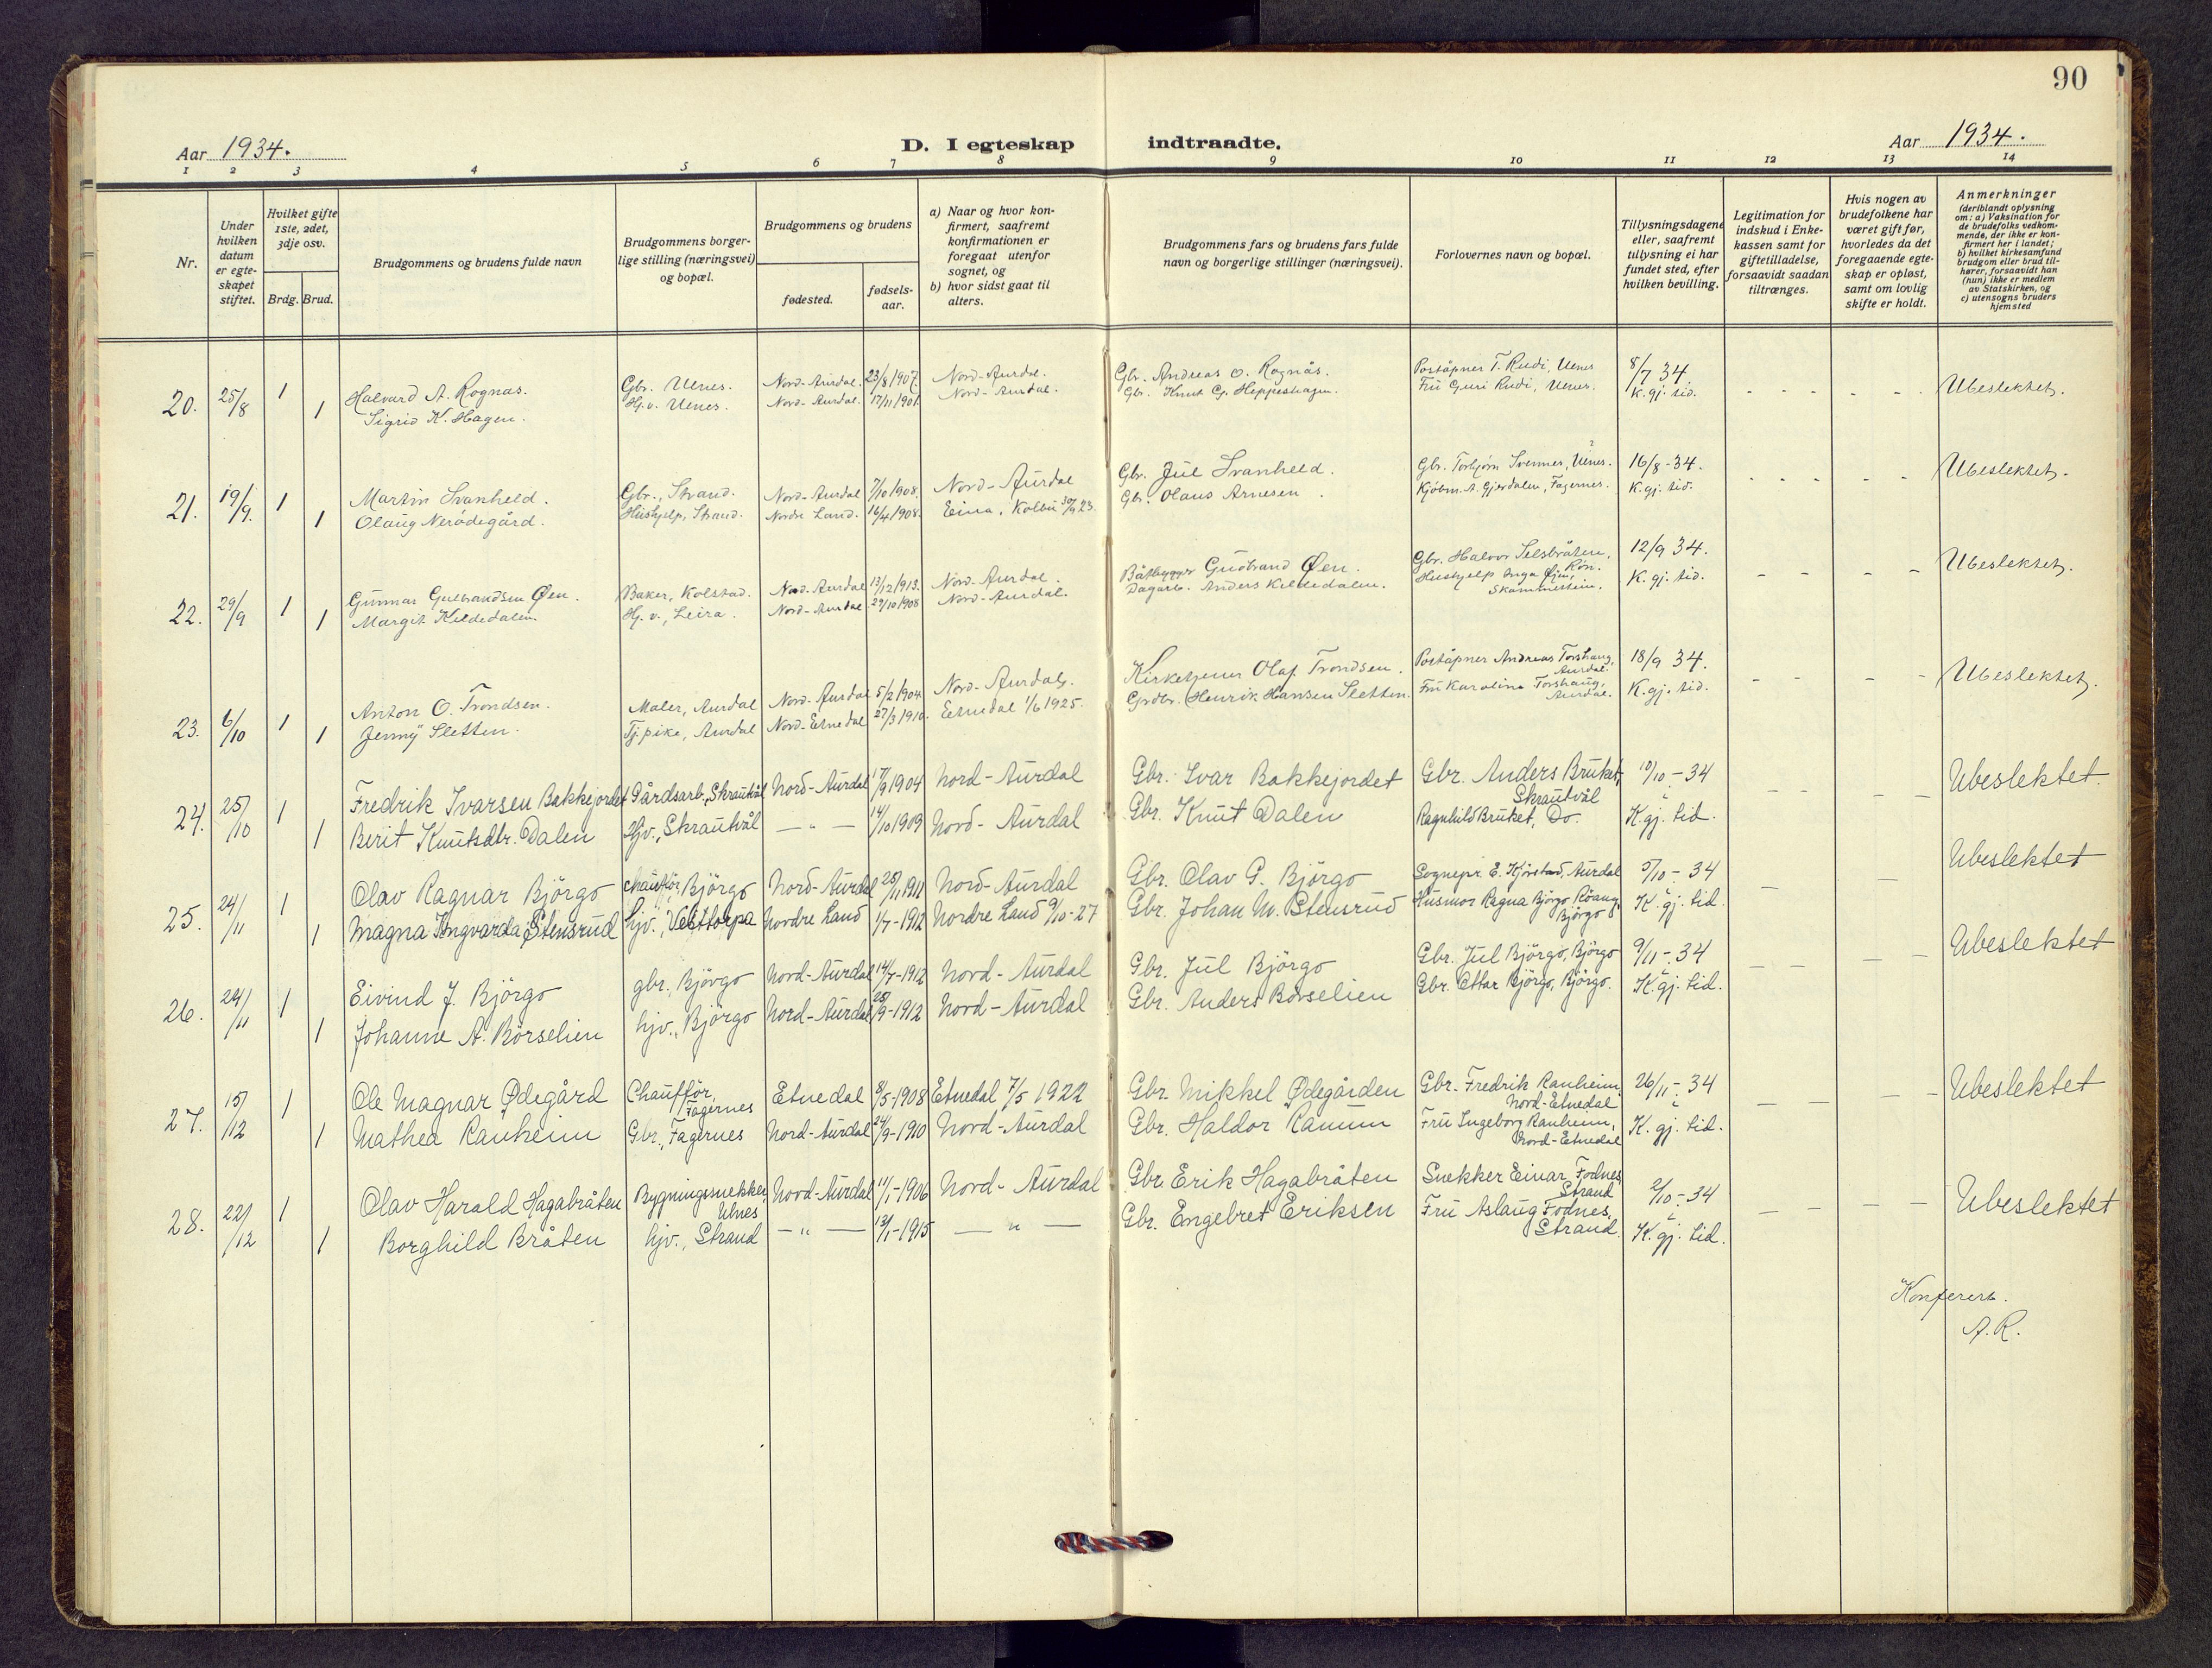 90
Aar 1934.
D. I egteskap indtraadte.
Aar 1934.
1 2 3 4 5 6 7 8 9 10 11 12 13 14
Nr.
Under hvilken datum er egteskapet stiftet.
Hvilket gifte 1ste, 2det, 3dje osv.
Brdg. Brud.
Brudgommens og brudens fulde navn
Brudgommens borgerlige stilling (næringsvei) og bopæl.
Brudgommens og brudens
fødested.
fødselsaar.
a) Naar og hvor konfirmert, saafremt konfirmationen er foregaat utenfor sognet, og
b) hvor sidst gaat til alters.
Brudgommens fars og brudens fars fulde navn og borgerlige stillinger (næringsvei).
Forlovernes navn og bopæl.
Tillysningsdagene eller, saafremt tullysning ei har fundet sted, efter hvilken bevilling.
Legitimation for indskud i Enkekassen samt for giftetilladelse, forsaavidt saadan tiltrænges.
Hvis nogen av brudefolkene har været gift før, hvorledes da det foregaaende egteskap er opløst, samt om lovlig skifte er holdt.
Anmerkninger (deriblandt oplysning om: a) Vaksination for de brudefolks vedkommende, der ikke er konfirmert her i landet; b) hvilket kirkesamfund brudgom eller brud tilhører, forsaavidt han (hun) ikke er medlem av Statskirken, og c) utensogns bruders hjemsted
20. 25/8 1 Halvard A. Rognås. Gbr. Ulnes. Nord-Aurdal. 23/8 1907. Nord-Aurdal. Gbr. Andreas O. Rognås. Poståpner T. Rudi, Ulnes 8/7 34 - - - - - Ubeslektet.
1 Sigrid K. Hagen. Hj.v. Ulnes. Nord-Aurdal. 17/11 1901. Nord-Aurdal. Gbr. Knut G. Heppeshagen. Fru Guri Rudi, Ulnes. K. gj. tid.
21. 19/9. 1 Martin Svanheld. Gbr., Strand. Nord-Aurdal 7/10 1908. Nord-Aurdal Gbr. Jul Svanheld. Gbr. Torbjørn Svennes, Ulnes. 16/8-34. - - - - - Ubeslektet.
1 Olaug Nerødegård. Hushjelp, Strand. Nordre Land. 16/4 1908. Eina, Kolbu 30/9 23. Gbr. Olaus Arnesen. Kjøbm. A. Gjerdalen, Fagernes. K. gj. tid.
22. 29/9 1 Gunnar Gulbrandsen Øen. Baker, Kolstad. Nord-Aurdal 13/12 1913. Nord-Aurdal. Båtbygger Gudbrand Øen. Gbr. Halvor Selsbråten, Røn. 12/9 34. - - - - Ubeslektet.
1 Margit Kildedalen. Hj. v., Leira. Nord-Aurdal 29/10 1908 Nord-Aurdal. Dagarb. Anders Kildedalen. Hushjelp Inga Øien, Skammestein. K. gj. tid.
23. 6/10 1 Anton O. Trondsen. Maler, Aurdal Nord-Aurdal 5/2 1904 Nord-Aurdal. Kirketjener Olaf Trondsen. Poståpner Andreas Torshaug, Aurdal. 18/9 34. - - - - Ubeslektet.
1 Jenny Sletten. Tj. pike, Aurdal Nord-Etnedal 27/3 1910. Etnedal 1/6 1925. Grdbr. Henrik Hansen Sletten. Fru Karoline Torshaug, Aurdal. K. gj. tid.
24. 25/10 1 Fredrik Ivarsen Bakkejordet Gårdsarb. Skrautvål Nord-Aurdal 17/9 1904 Nord-Aurdal Gbr. Ivar Bakkejordet Gbr. Anders Bruket, Skrautvål 10/10-34 - - - - Ubeslektet
1 Berit Knutsdtr. Dalen Hjv., Skrautvål — „ — 14/10 1909 Nord-Aurdal Gbr. Knut Dalen Ragnhild Bruket, Do. K. gj. tid.
25. 24/11 1 Olav Ragnar Bjørgo Chauffør, Bjørgo Nord-Aurdal 25/1 1911 Nord-Aurdal Gbr. Olav G. Bjørgo Sognepr. E. Kjørstad, Aurdal 5/10-34 - - Ubeslektet
1 Magna Ingvarda Stensrud hjv., Vesttorpa Nordre Land 1/7-1912 Nordre Land 9/10-27 Gbr. Johan M. Stensrud Husmor Ragna Bjørgo, Bjørgo K. gj. tid.
26. 24/11 1 Eivind J. Bjørgo gbr., Bjørgo Nord-Aurdal 14/7-1912 Nord-Aurdal Gbr. Jul Bjørgo Gbr. Jul Bjørgo, Bjørgo 9/11-34 - - - - Ubeslektet
1 Johanne A. Børselien hjv., Bjørgo Nord-Aurdal 28/9-1912 Nord-Aurdal Gbr. Anders Børselien Gbr. Ottar Bjørgo, Bjørgo. K. gj. tid.
27. 15/12 1 Ole Magnar Ødegård Chauffør, Fagernes Etnedal 8/5-1908 Etnedal 7/5 1922 Gbr. Mikkel Ødegården Gbr. Fredrik Ranheim Nord-Etnedal 26/11-34 - - - - Ubeslektet
1 Mathea Ranheim Gbr., Fagernes Nord-Aurdal 24/9-1910 Nord-Aurdal Gbr. Haldor Ranum Fru Ingeborg Ranheim, Nord-Etnedal K. gj. tid.
28. 22/12 1 Olav Harald Hagabråten Bygningssnekker, Ulnes Nord-Aurdal 11/1-1906 Nord-Aurdal Gbr. Erik Hagabråten Snekker Einar Fodnes, Strand 2/10-34 - - - - Ubeslektet
1 Borghild Bråten hjv., Strand — „ — 13/1-1915 — „ — Gbr. Engebret Eriksen Fru Aslaug Fodnes, Strand. K. gj. tid.
Konferert.
A. R.